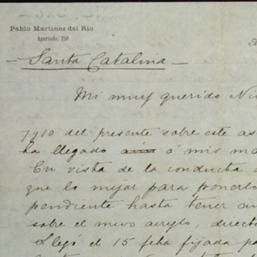 Pablo Martinez del Rio.
Apartado, 250
Santa Catalina
Mi muy querido Ni
7910 del presente sobre este as
ha llegado aún á mis ma
En vista de la conducta
que lo mejor para ponerlo
pendiente hasta tener
sobre el nuevo arreglo, direct
Llegó el 15 fecha fijada pa